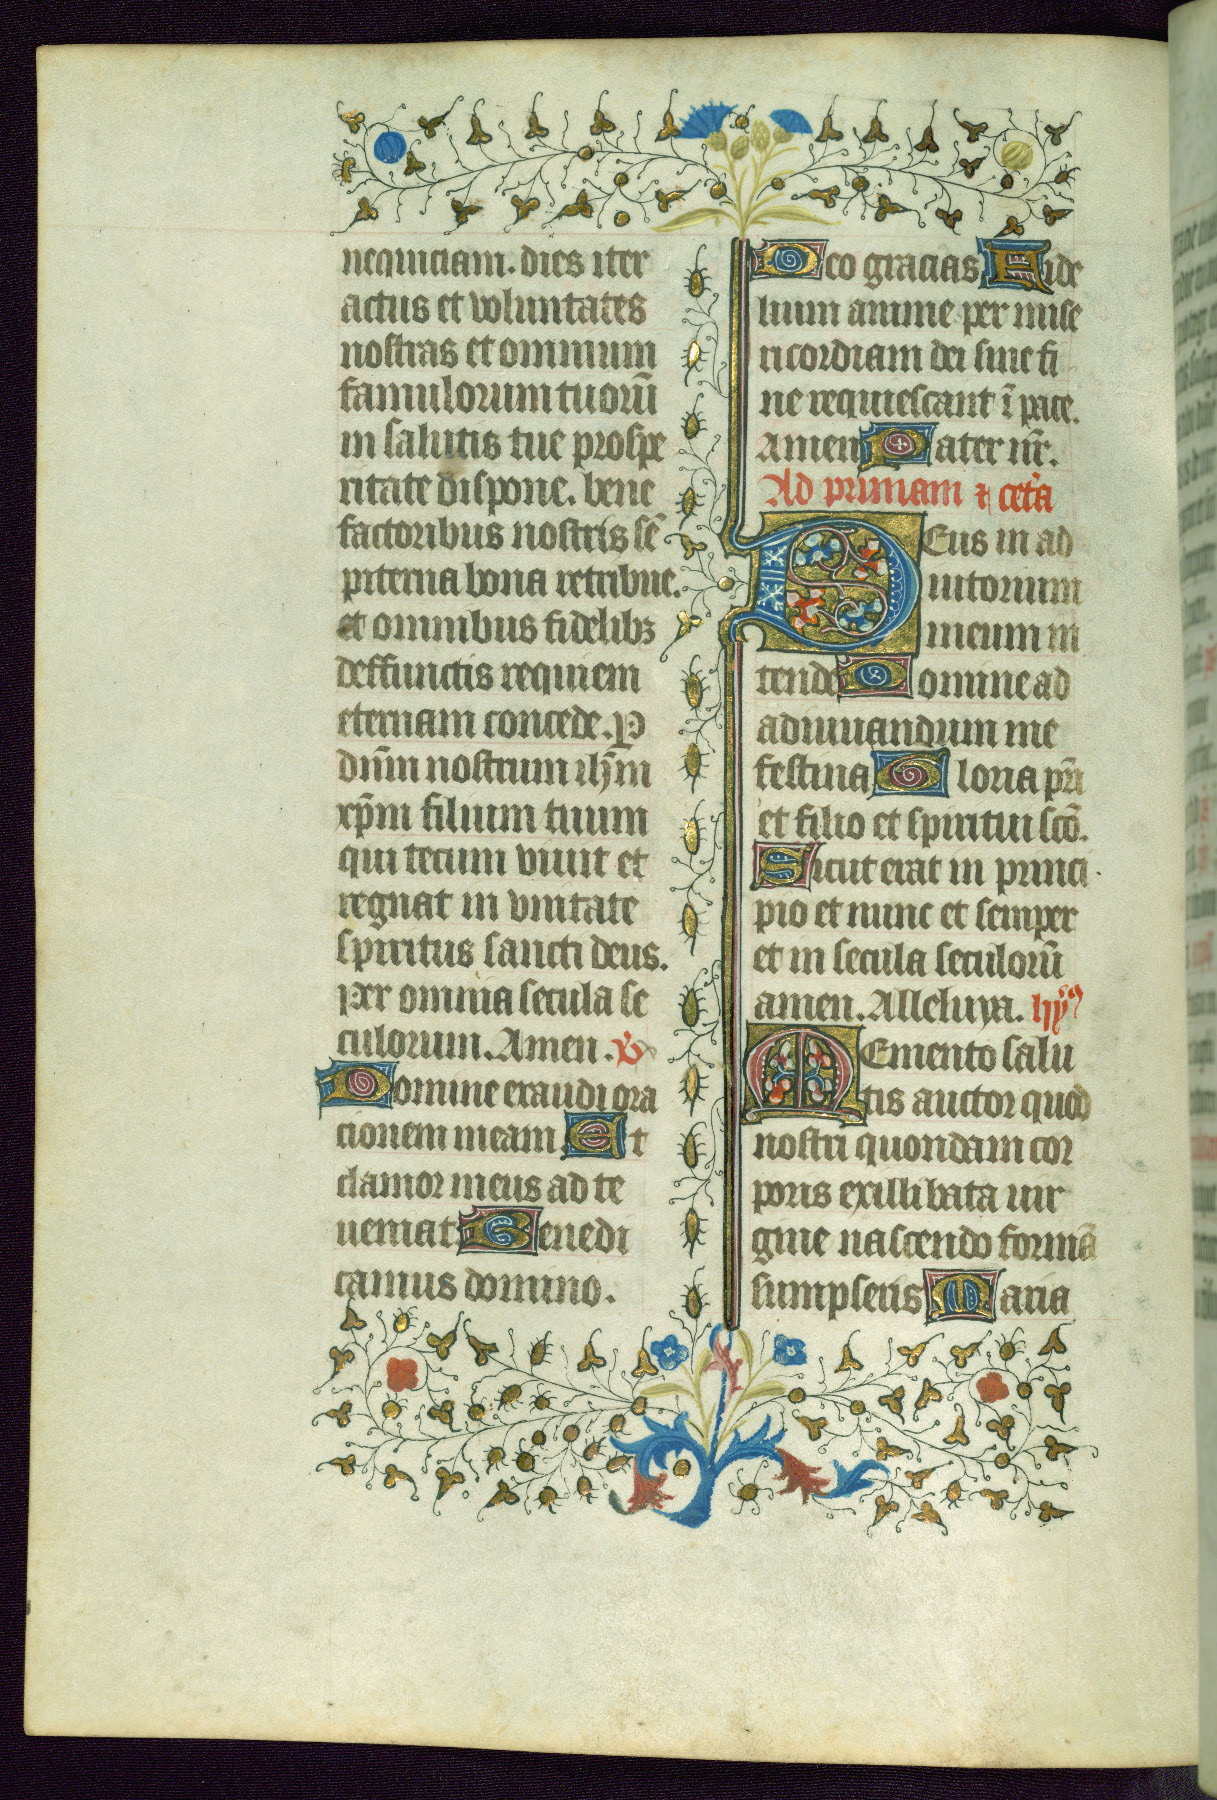 nequiciam. dies iter
actus et voluntates
nostras et omnium
famulorum tuorū
in salutis tue prospe
ritate dispone. bene
factoribus nostris sē
piterna bona retribue.
et omnibus fidelibꝫ
deffunctis requiem
eternam concede. P
dn̄m nostrum ih̄m
xp̄m filium tuum
qui tecum viuit et
regnat in vnitate
spiritus sancti deus.
Per omnia secula se
culorum. Amen. ℣
Domine exaudi ora
cionem meam Et
clamor meus ad te
ueniat Benedi
camus domino.
Deo gracias Fide
lium anime per mise
ricordiam dei sine fi
ne requiescant ī pace.
Amen Pater nr̄.
Ad primam ⁊ cet̄a
DEus in ad
iutorium
meum in
tende Domine ad
adiuuandum me
festina Gloria pr̄i
et filio et spiritui scō.
Sicut erat in princi
pio et nunc et semper
et in secula seculorū
amen. Alleluya. hy
MEmento salu
tis auctor quod
nostri quondam cor
poris exillibata uir
gine nascendo formā
sumpseris Maria